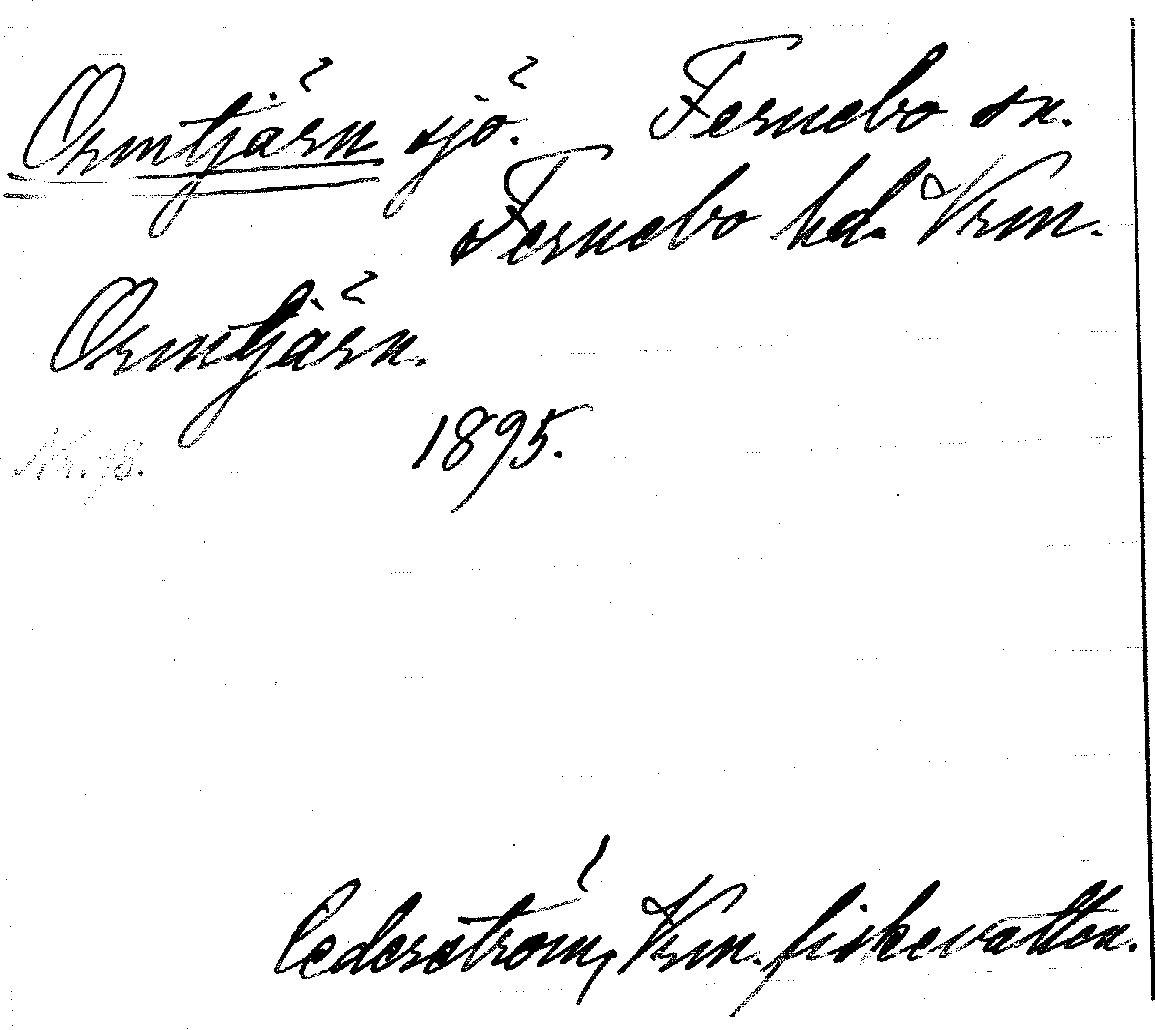 Ormtjärn sjö. Fernebo sn.
Fernebo hd. Vrm.
Ormtjärn.
1895.
Nr. 98.
Cederström, Vrm. fiskevatten.